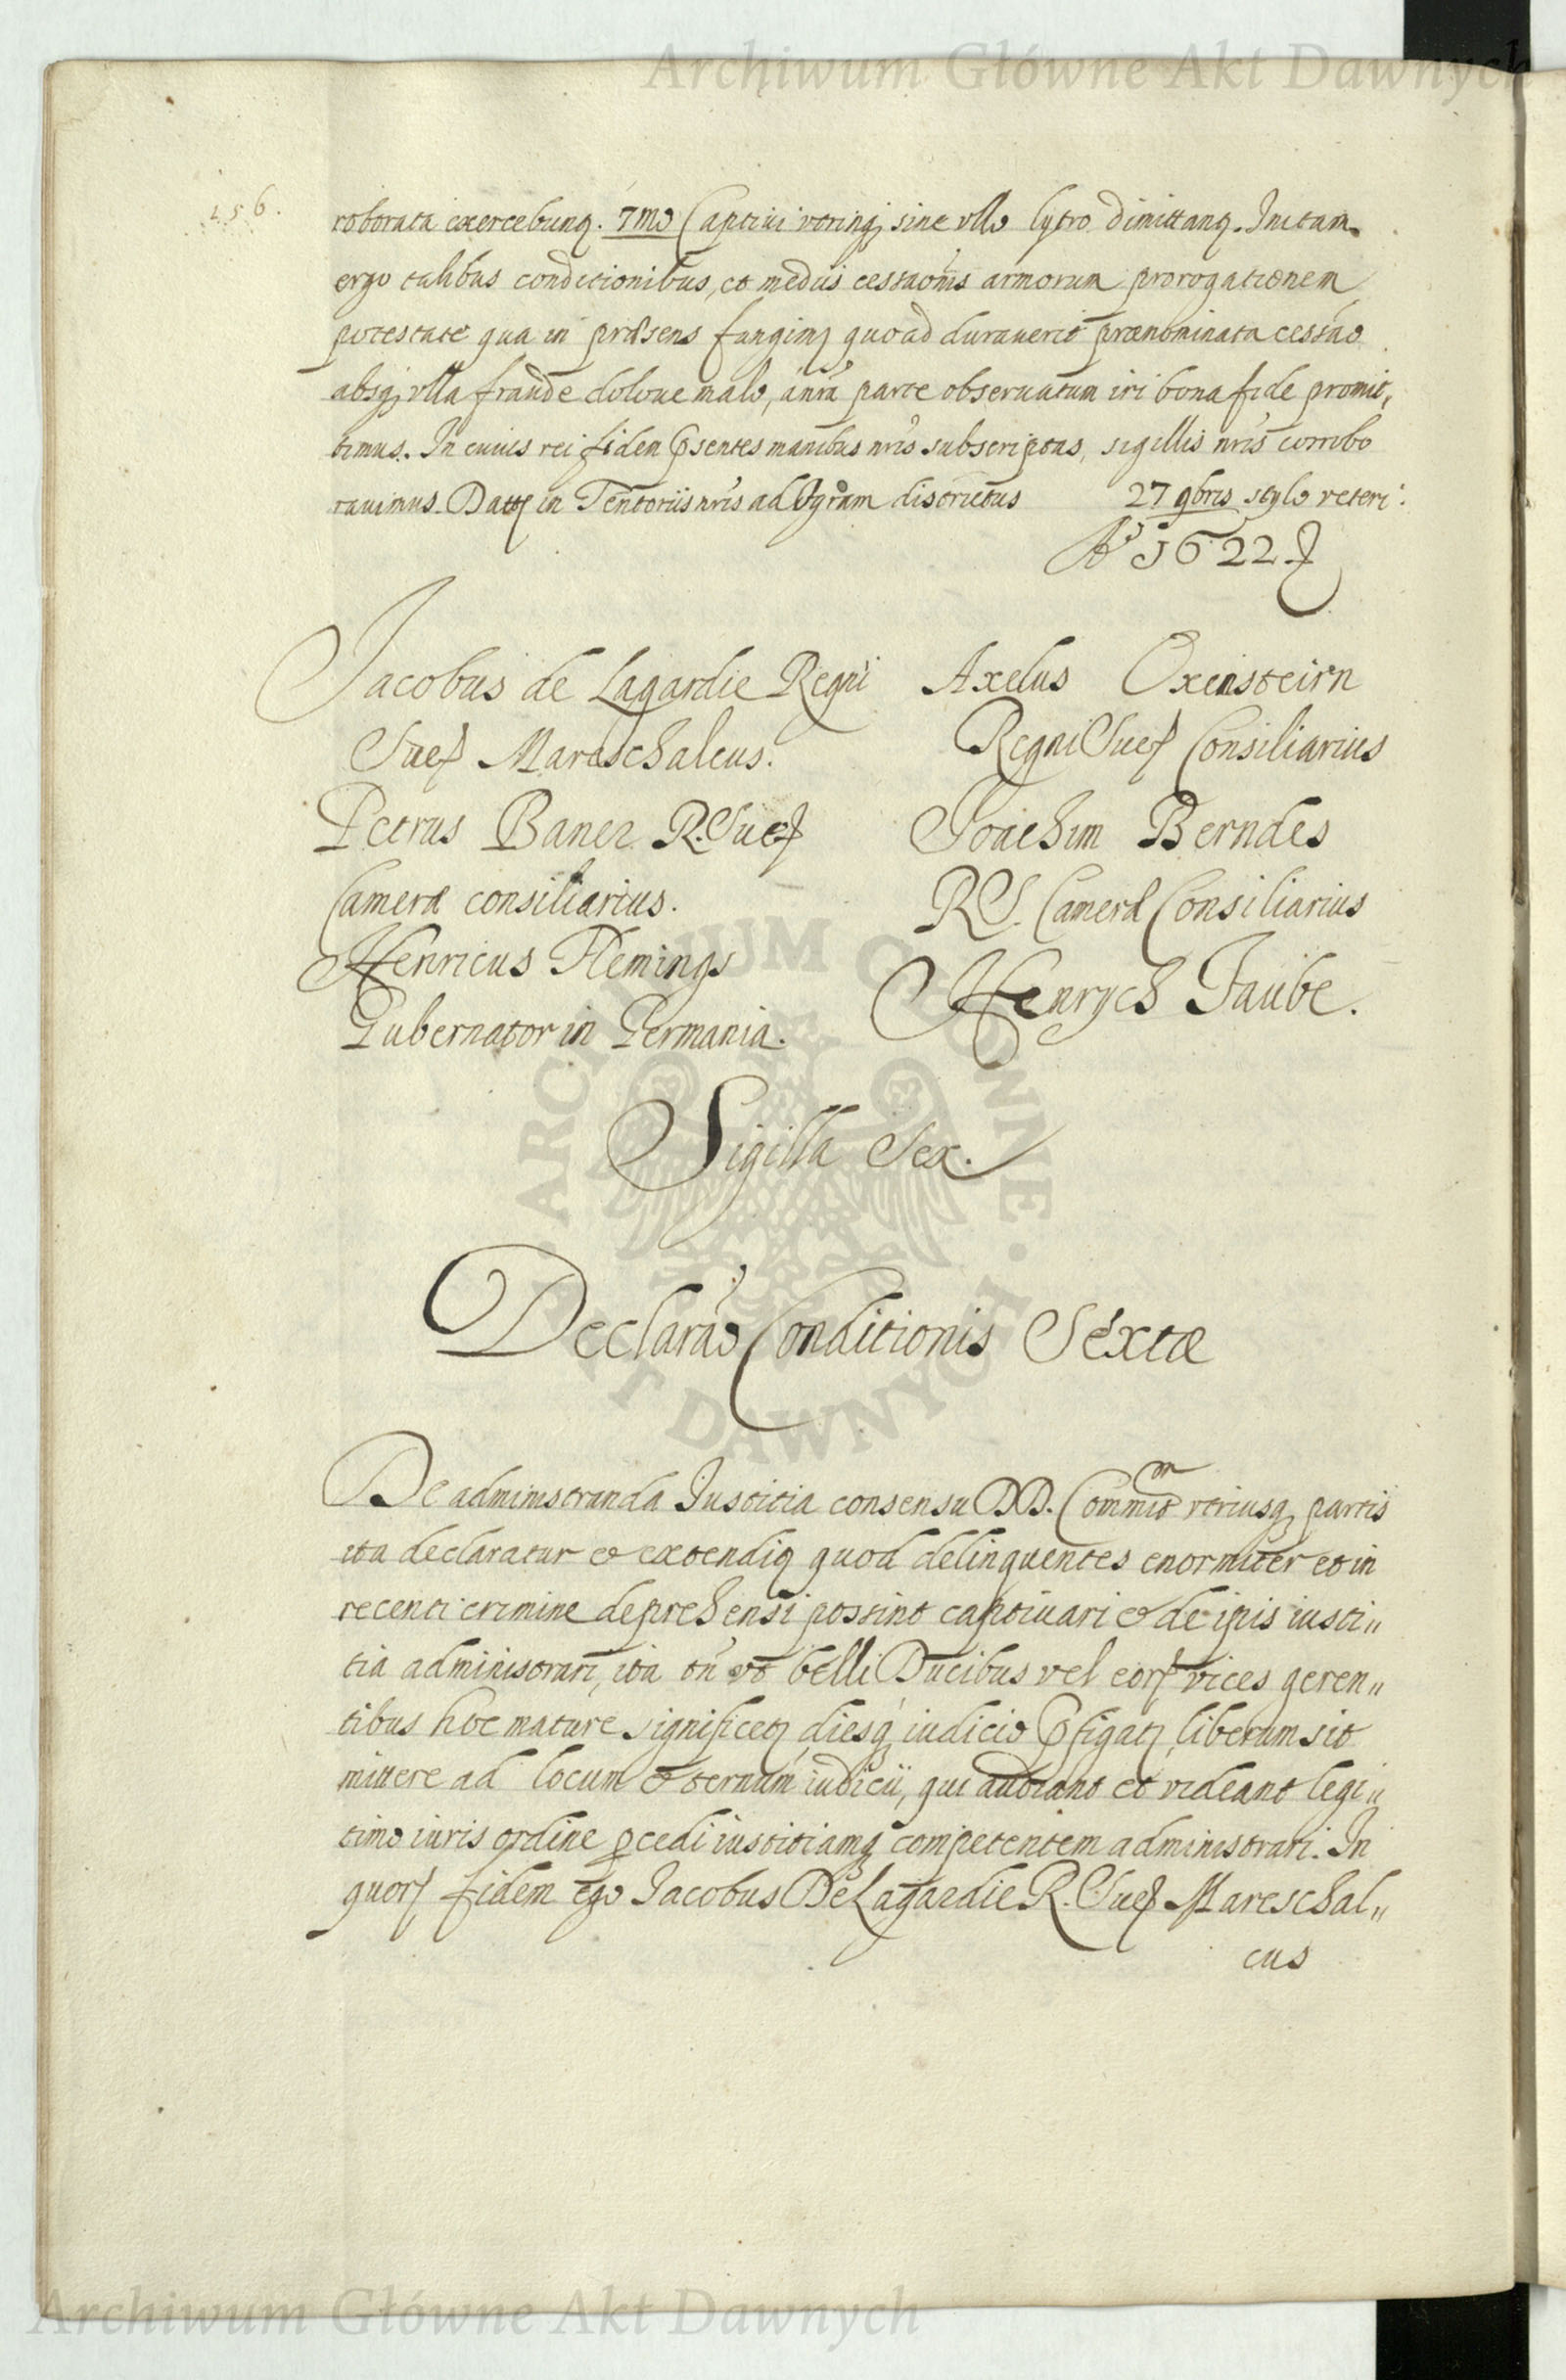 Archiwum Główne Akt Dawnych
256.
roborata exercebunꝗ. 7mo Captiui vtrinqꝫ sine vllo lytro dimittanꝗ. Initam
ergo talibus conditionibus, et mediis cessaõnis armorum prorogationem
potestate qua in præsens fungimꝰ quoad durauerit prænominata cessaõ
absqꝫ vlla fraude doloue malo, a nrã parte obseruatum iri bona fide promit,
timus. In cuius rei fidem p̃sentes manibus nrĩs subscriptas, sigillis nrĩs corrobo
rauimus. Datꝫ in Tentoriis nrĩs ad Ogram districtus 27 9bris stylo veteri.
Aº 1622.
Jacobus de Lagardie Regni
Sueꝭ Mareschalcus.
Petrus Baner R. Sueꝭ
Cameræ consiliarius.
Henricus Flemings
Gubernator in Germania.
Axelus Oxensteirn
Regni Sueꝭ Consiliarius
Joachim Berndes
R S. Cameræ Consiliarius
Henrych Taube.
Sigilla Sex.
Declaraõ Conditionis Sextæ
De administranda Justitia consensu DD. Commiss vtriusqꝫ partis
ita declaratur et extendiꝗ quod delinquentes enormiter et in
recenti crimine deprehensi possint captiuari et de ip̃is iusti„
tia administrari, ita tñ vt belli Ducibus vel eorꝭ vices geren„
tibus hoc mature significetꝫ diesqꝫ iudicio p̃figatꝫ, liberum sit
mittere ad locum et ternum iudicii, qui audiant et videant legi„
timo iuris ordine ꝓcedi iustitiamqꝫ competentem administrari. In
quorꝭ fidem ego Jacobus De Lagardie R. Sueꝭ Mareschal„
cus
Archiwum Główne Akt Dawnych